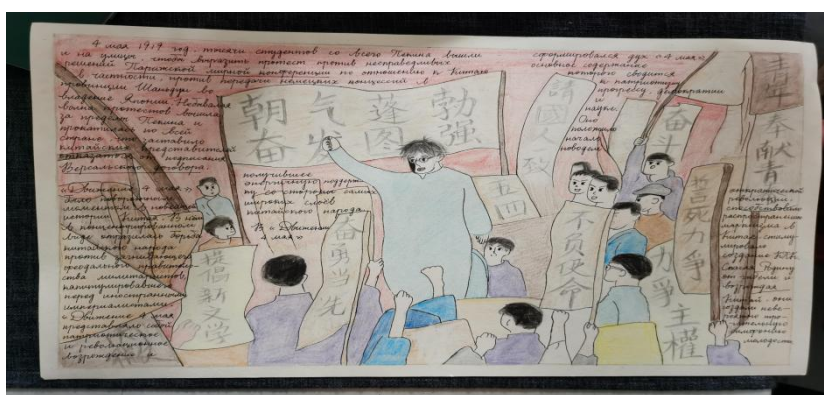 4 мая 1919 год, тысячи студентов со всего Пекина вышли
и на улицы, чтобы выразить протест против несправедливых
решений Парижской мирной конференции по отношению к Китаю
в частности, против передачи немецких концессий в
провинции Шаньдун во
владение Японии. Небывалая
волна протестов
за пределы Пекина и
прокатилась по всей
стране, что заставило
китайских представителей
отказаться от подписания
Версальского договора.
«Движение 4 мая»
моментом в
истории Китая. В нём
в концентрированном
виде отразилась борьба
китайского народа
против
феодального
ства милитаристов,
капитулировавшего
перед иностранным
империализмом.
«Движение 4 мая
представляло собой
патриотическое
и революционное
возрождение и
получившее
поддержку
со стороны самых
широких слоёв
китайского народа
В «Движении
4 мая»
сформировался дух «4 мая»
основное содержание
которого сводится
к патриотизму
прогрессу, демократии
и
науке.
Оно
положило
начало
революции,
способствовало
распространению
марксизма в
Китае,
создание КПК.
молодости
朝气蓬勃
奋发图强
請國人致
五四
奋斗
青年奉献青
誓死力爭
力爭主權
不负使命
奋勇当先
提倡新文学